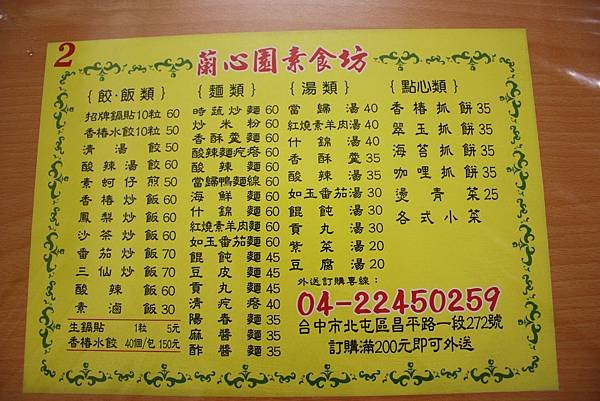 2
蘭心園素食坊
{餃·飯類}
招牌鍋貼10粒 60
香椿水餃10粒 50
清湯餃 50
酸辣湯餃 60
素蚵仔煎 50
香椿炒飯 60
鳳梨炒飯 60
沙茶炒飯 60
番茄炒飯 70
三仙炒飯 70
酸辣飯 60
素滷飯 30
生鍋貼 1粒 5元
香椿水餃 40個/包 150元
{麵類}
時蔬炒麵 60
炒米粉 60
香酥羹麵 60
酸辣麵疙瘩 60
當歸鴨麵線 60
海鮮麵 60
什錦麵 60
紅燒素羊肉麵 60
如玉番茄麵 60
餛飩麵 45
豆皮麵 45
貢丸麵 45
清疙瘩 40
陽春麵 35
麻醬麵 35
酢醬麵 35
{湯類}
當歸湯 40
紅燒素羊肉湯 40
什錦湯 40
香酥羹 35
酸辣湯 35
如玉番茄湯 30
餛飩湯 30
貢丸湯 30
紫菜湯 20
豆腐湯 20
{點心類}
香椿抓餅 35
翠玉抓餅 35
海苔抓餅 35
咖哩抓餅 35
燙青菜 25
各式小菜
外送訂購專線：
04-22450259
台中市北屯區昌平路一段272號
訂購滿200元即可外送